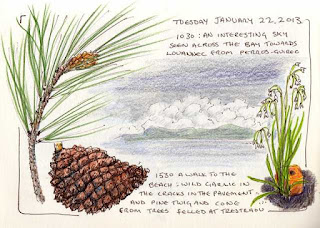 TUESDAY JANUARY 22, 2013
1030: AN INTERESTING SKY
SEEN ACROSS THE BAY TOWARDS
LOUANNEC FROM PERROS-GUIREC
1530 A WALK TO THE
BEACH: WILD GARLIC IN
THE CRACKS IN THE PAVEMENT -
AND PINE TWIG AND CONE
FROM TREES FELLED AT TRESTRAOU